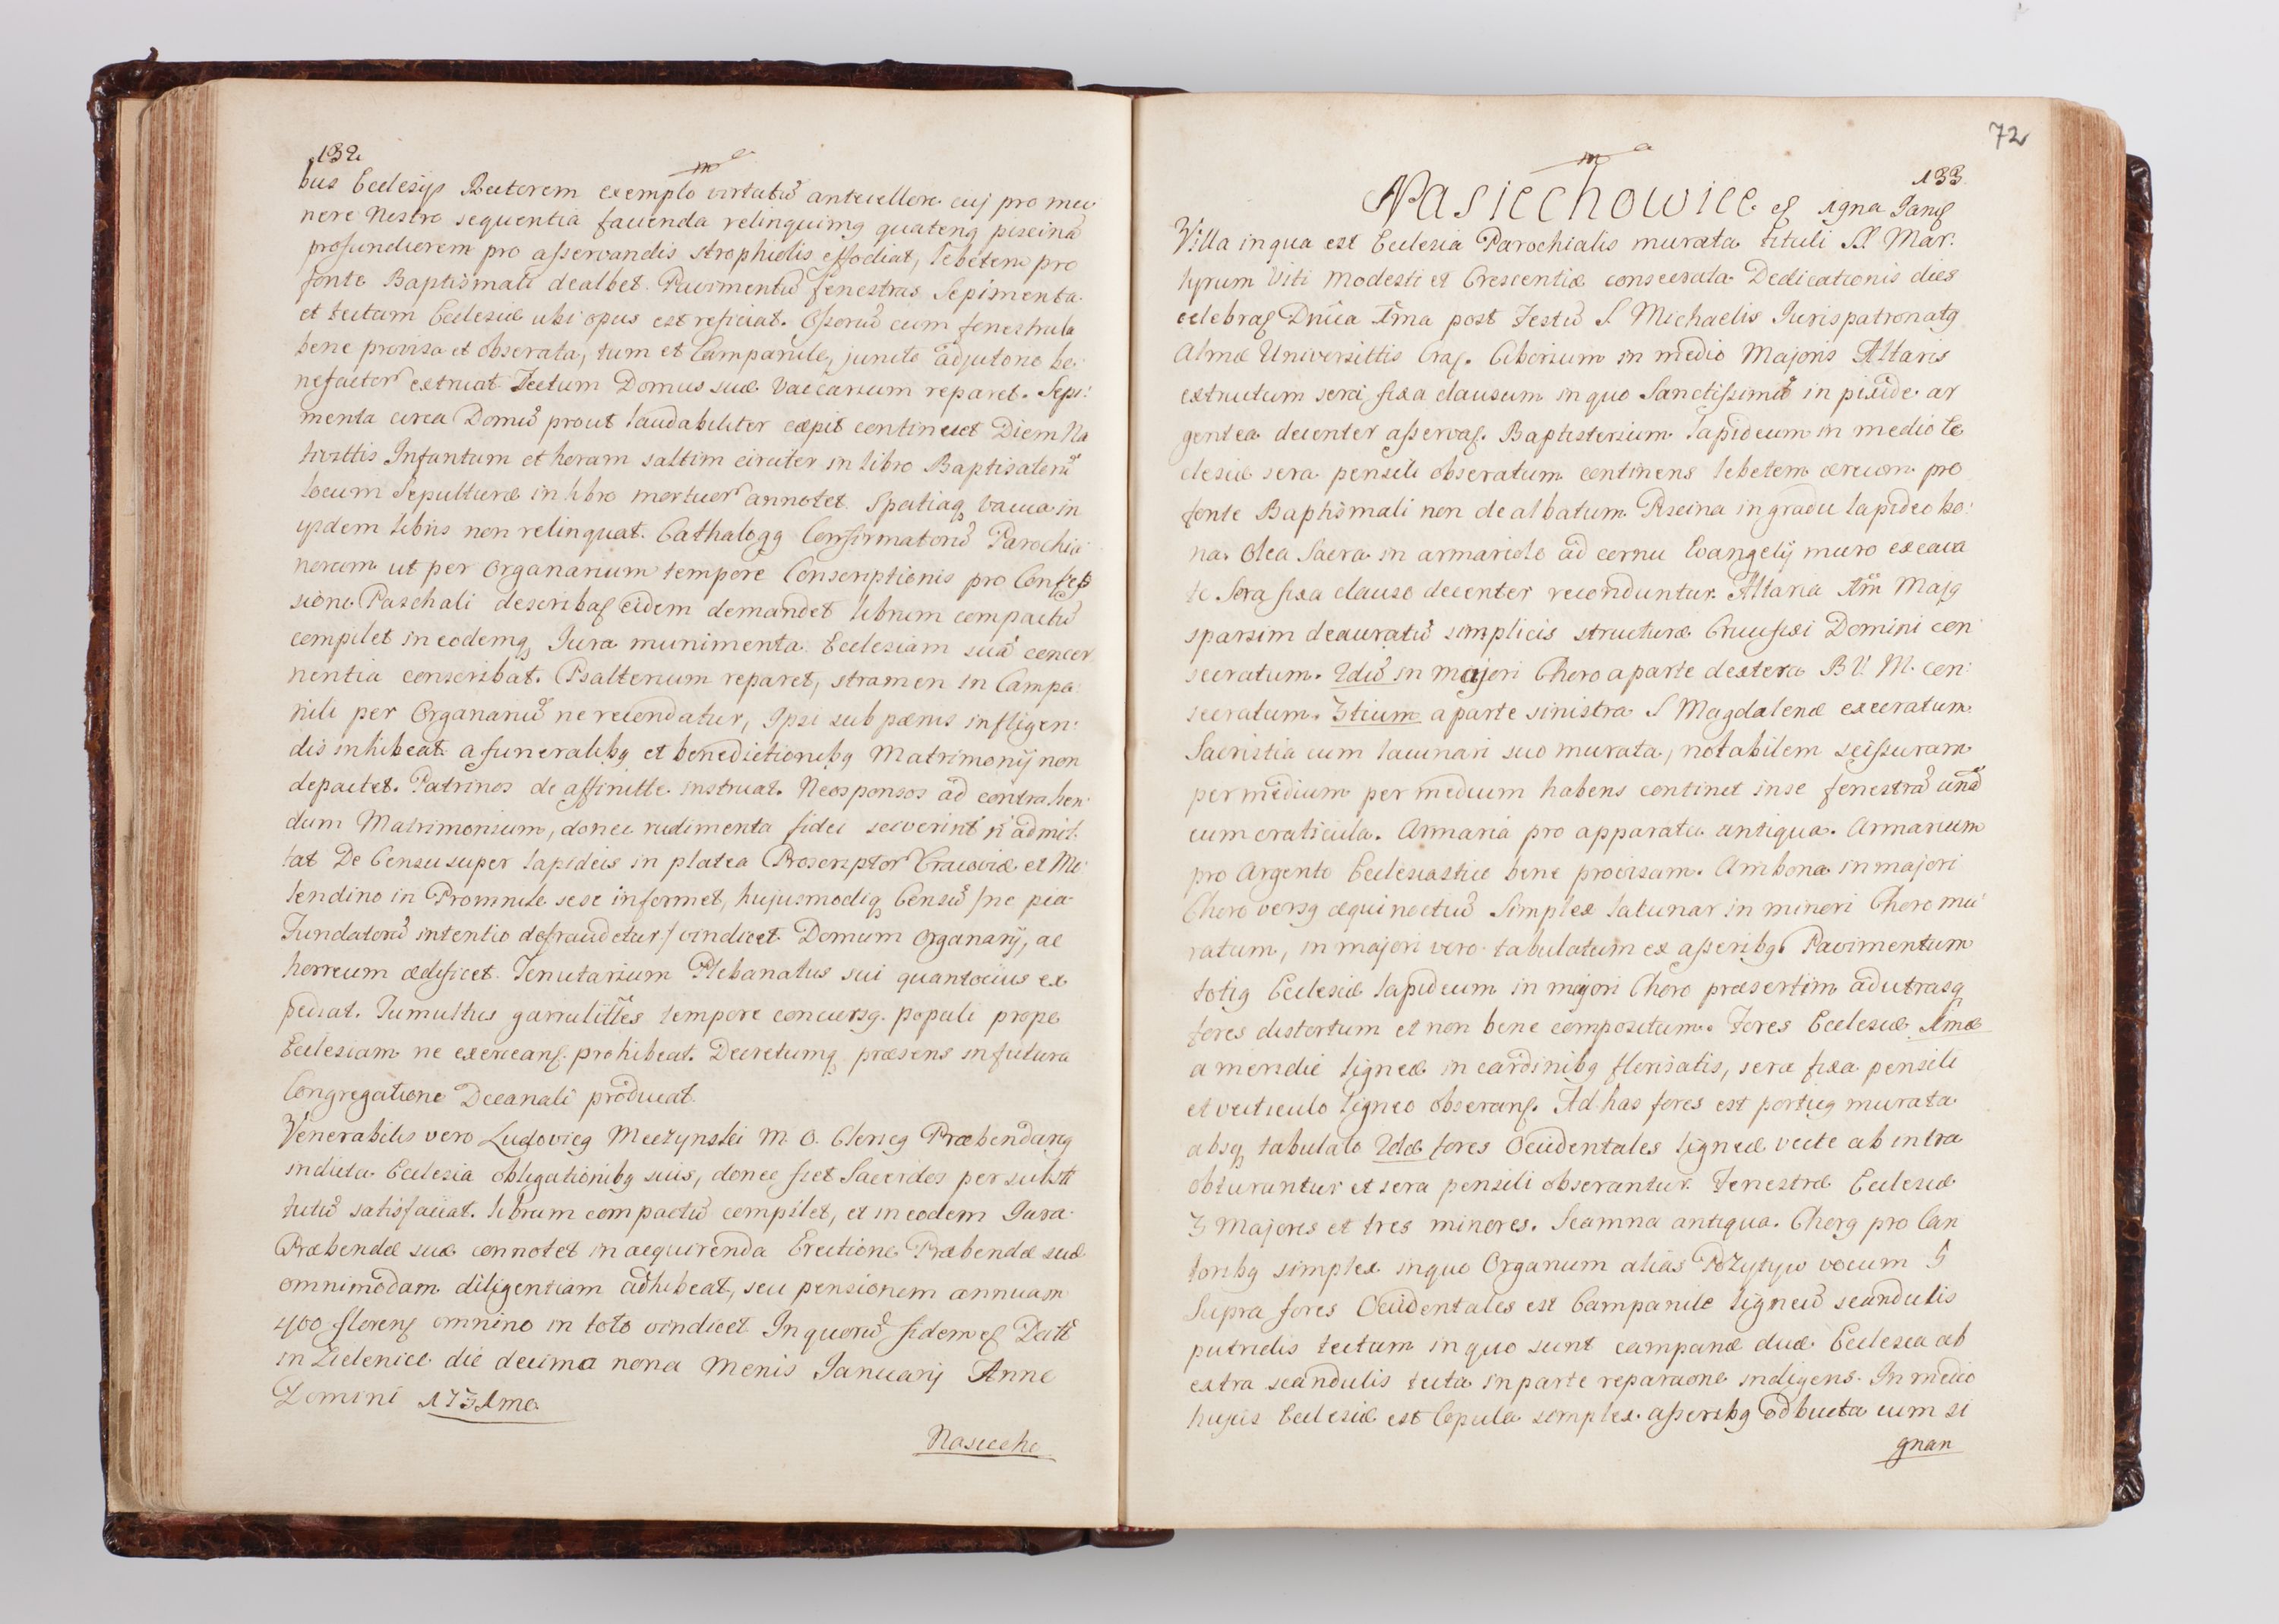 132
m
bus Ecclesijs Rectorem exemplo virtutũ antecellere cuj pro mu
nere Nostro sequentia facienda relinquimq quatenq piscinã
profundiorem pro asservandis strophiolis effodiat, lebetem pro
fonte Baptismali dealbet. Pavimentũ fenestras Sepimenta
et tectum Ecclesiæ ubi opus est reficiat. Ossoriũ cum fenestrula
bene provisa et obserata, tum et Campanile, juncto adjutorio be:
nefactor̃ extruat Tectum Domus suæ Vaccarium reparet. Sepi:
menta circa Domũ prout laudabiliter cæpit continuet Diem Na
tivittis Infantum et horam saltim circiter in libro Baptisatorũ
locum Sepulturæ in libro mortuor̃ annotet. Spatiaq vacua in
ijsdem libris non relinquat. Cathalogq Confirmatorũ Parochia
norum ut per Organarium tempore Conscriptionis pro Confes
sione Paschali describat eidem demandet librum compactũ
compilet in eodemq Jura munimenta Ecclesiam suã concer
nentia conscribat. Psalterium reparet, stramen in Campa:
nili per Organariũ ne recondatur, Ipsi sub pænis infligen:
dis inhibeat. a funeralibq et benedictionibq Matrimonij non
depactet. Patrinos de affinitte instruat. Neosponsos ad contrahen
dum Matrimonium, donec rudimenta fidei sciverint ñ admit:
tat De Censu super lapideis in platea Proscriptor̃ Cracoviæ et Mo
lendino in Promnik sese informet, hujusmodiq Censũ /ne pia
Fundatorũ intentio defraudetur/ vindicet. Domum Organarij, ac
horreum ædificet. Tenutarium Plebanatus sui quantocius ex
pediat. Tumultus garrulittes tempore concursq populi prope
Ecclesiam ne exerceant prohibeat. Decretumq præsens in futura
Congregatione Decanali producat.
Venerabilis vero Ludovicq Meczynski M. O. Clericq Præbendarq
in dicta Ecclesia obligationibq suis, donec fiet Sacerdos per substi
tutũ satisfaciat. librum compactũ compilet, et in eodem Jura
Præbendæ suæ connotet in acquirenda Erectione Præbendæ suæ
omnimodam diligentiam adhibeat, seu pensionem annuam
400 floren omnino in toto vindicet In quorũ fidem etc Datt
in Zielenice die decima nona Mensis Januarij Anno
Domini 1731mo
Nasiecho
72
m
133
Nasiechowice et signa Jang
Villa in qua est Ecclesia Parochialis murata tituli SS. Mar:
tyrum Viti Modesti et Crescentiæ consecrata Dedicationis dies
celebrat Dñica 1ma post Festũ S. Michaelis Jurispatronatq
Almæ Universittis Crac. Ciborium in medio Majoris Altaris
extructum sera fixa clausum in quo Sanctissimũ in pixide ar
gentea decenter asservat. Baptisterium lapideum in medio Ec
clesiæ sera pensili obseratum continens lebetem æreum pro
fonte Baptismali non dealbatum. Piscina in gradu lapideo bo:
na. Olea Sacra in armariolo ad cornu Evangelij muro excava
to Sera fixa clauso decenter reconduntur. Altaria 1m Majq
sparsim deauratũ simplicis structuræ Crucifixi Domini con
secratum. 2dũ in majori Choro a parte dextera B V. M. con:
secratum. 3tium a parte sinistra S Magdalenæ execratum.
Sacristia cum lacunari suo murata, notabilem scissuram
per medium per medium habens continet in se fenestrã unã
cum craticula. Armaria pro apparatu antiqua. Armarium
pro Argento Ecclesiastico bene provisam. Ambona in majori
Choro versq æquinoctiũ Simplex lacunar in minori Choro mu
ratum, in majori vero tabulatum ex asseribq. Pavimentum
totiq Ecclesiæ lapideum in majori Choro præsertim ad utrasq
fores distortum et non bene compositum. Fores Ecclesiæ 1mæ
a meridie ligneæ in cardinibq florisatis, sera fixa pensili
et vecticulo ligneo obserant. Ad has fores est porticq murata
absq tabulato 2dæ fores Occidentales ligneæ vecte ab intra
obturantur et sera pensili obserantur. Fenestræ Ecclesiæ
3 Majores et tres minores. Scamna antiqua. Chorq pro Can
toribq simplex in quo Organum alias Pozytyw vocum 5
Supra fores Occidentales est Campanile ligneũ scandulis
putridis tectum in quo sunt campanæ duæ Ecclesia ab
extra scandulis tecta in parte reparaone indigens. In medio
hujus Ecclesiæ est Copula simplex asseribq obducta cum si
gnan